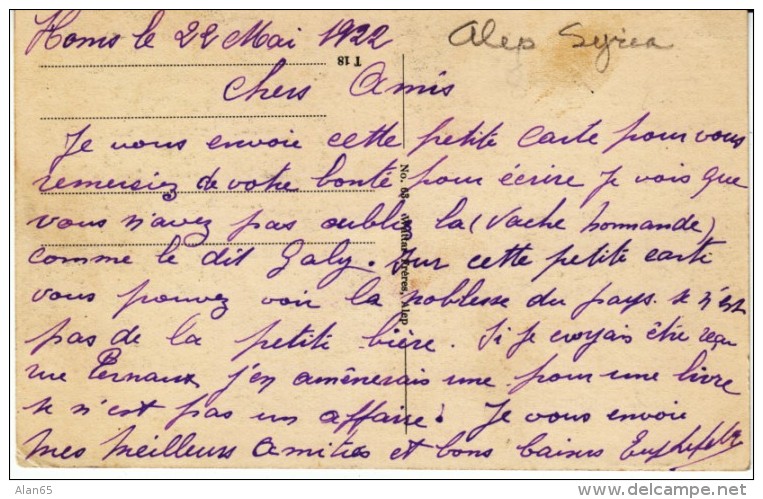 Homs le 22 Mai 1922
Alep Syria
T 18
chers Amis
Je vous envoie cette petite carte pour vous
remersiez de votre bonté pour écrire Je vois que
vous n'avez pas oublie la (Vache normande)
comme le dit Galy. sur cette petite carte
vous pouvez voir la noblesse du pays. se n'est
pas de la petite bière. Si je croyais être reçu
rue Pernaux j'en amènerais une pour une livre
se n'est pas un affaire! Je vous envoie
mes meilleurs amitiés et bons baisers
No. 68 - Wattar Frères, Alep
Alan65
delcampe.net